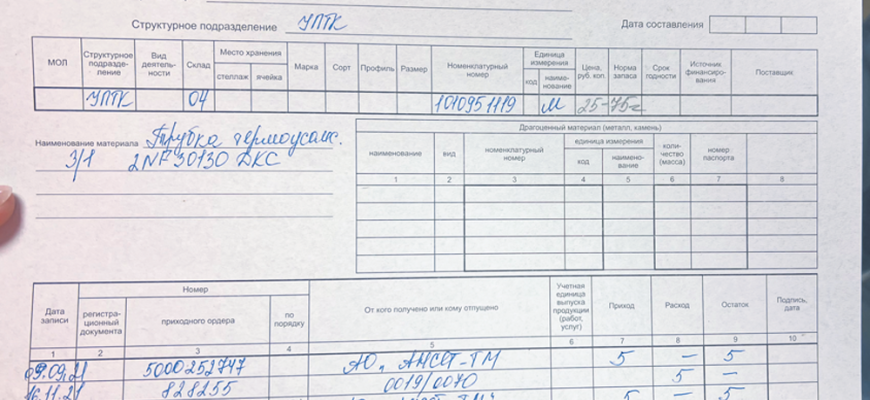 Структурное подразделение УПТК Дата составления
МОЛ Структурное подразде-ление Вид деятель-ности Склад Место хранения стеллаж ячейка Марка Сорт Профиль Размер Номенклатурный номер Единица измерения код наиме-нование Цена, руб. коп. Норма запаса Срок годности Источник финансиро-вания Поставщик
УПТК 04 1010951119 м 25-75
Драгоценный материал (металл, камень)
Наименование материала Трубка термоусаж.
3/1 2NF30130 ДКС
наименование вид номенклатурный номер единица измерения код наимено-вание коли-чество (масса) номер паспорта
1 2 3 4 5 6 7 8
Дата записи Номер регистра-ционный документа приходного ордера по порядку От кого получено или кому отпущено Учетная единица выпуска продукции (работ, услуг) Приход Расход Остаток Подпись, дата
1 2 3 4 5 6 7 8 9 10
09.09.21 5000252747 АО "АНСАТ-ТМ 5 – 5
16.11.21 828255 0019/0070 5 –
5 – 5